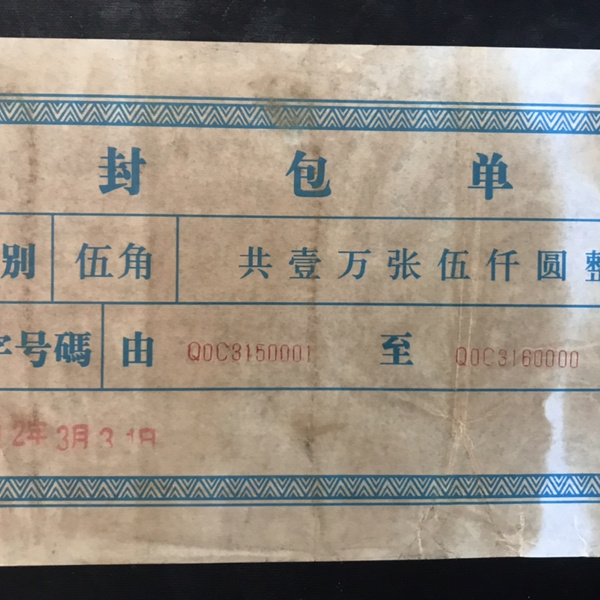 封包单
别 伍角 共壹万张伍仟圆整
字号碼 由 Q0C3150001 至 Q0C3160000
2年3月31日